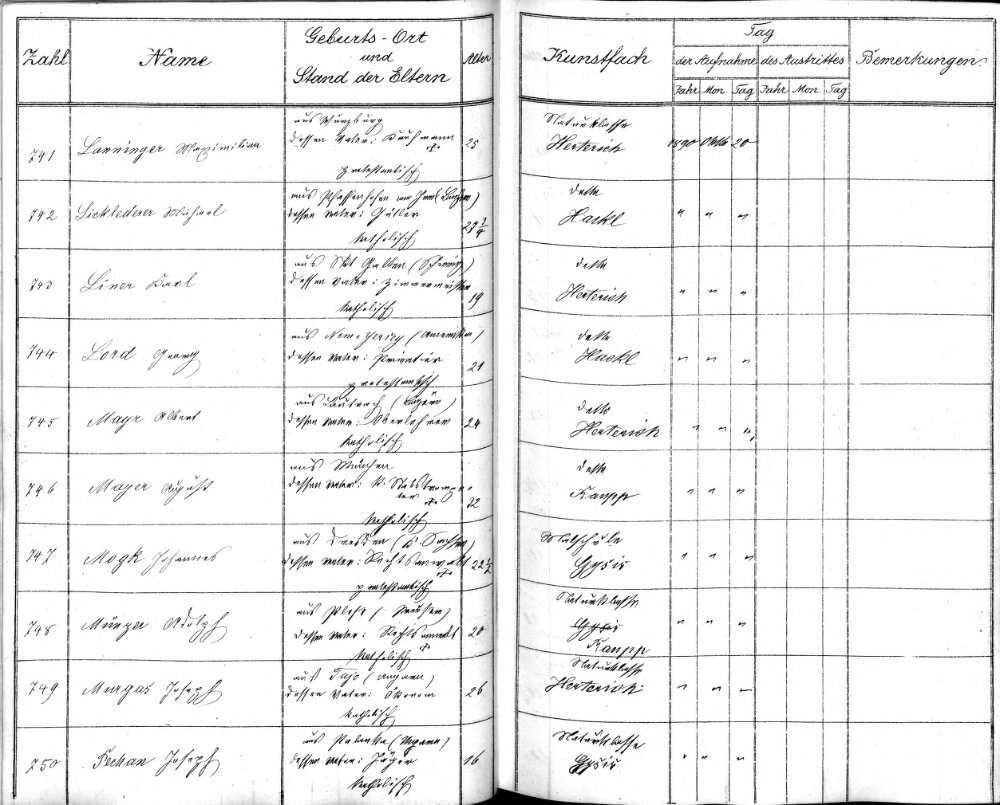 Zahl
Name
Geburts-Ort
und
Stand der Eltern
Alter
Kunstfach
Tag
der Aufnahme
des Austrittes
Jahr Mon. Tag Jahr Mon. Tag
Bemerkungen.
741
Lanninger Maximilian
aus Würzburg
dessen Vater: Kaufmann
protestantisch
25
Naturklasse
Herterich
1890 Oktb 20
742
Lickleder Michael
aus Pfaffenhofen am Inn (Bayern)
dessen Vater: Gütler
katholisch
detto
Hackl
" " "
743
Liner Karl
aus Skt Gallen (Schweiz)
dessen Vater: Zimmermeister
katholisch
19
detto
Herterich
" " "
744
Lord Georg
aus New-Jersey (Amerika)
dessen Vater: Privatier
protestantisch
21
detto
Hackl
" " "
745
Mayr Albert
aus Lautrach (Bayern)
dessen Vater: Oberlehrer
katholisch
24
detto
Herterich
" " "
746
Mayer August
aus München
dessen Vater: k.
†
katholisch
detto
Raupp
" " "
747
Mogk Johannes
aus Dresden (K. Sachsen)
dessen Vater: Rechtsanwalt
†
protestantisch
22 1/2
Malschule
Gysis
" " "
748
Münzer Adolph
aus Pless (Preußen)
dessen Vater: Rechtsanwalt
†
katholisch
20
Naturklasse
Gysis
Raupp
" " "
749
Murgas Joseph
aus Tajo (Ungarn)
dessen Vater: Ökonom
katholisch
26
Naturklasse
Herterich
" " "
750
Pechan Joseph
aus Palanka (Ungarn)
dessen Vater: Jäger
katholisch
16
Naturklasse
Gysis
" " "